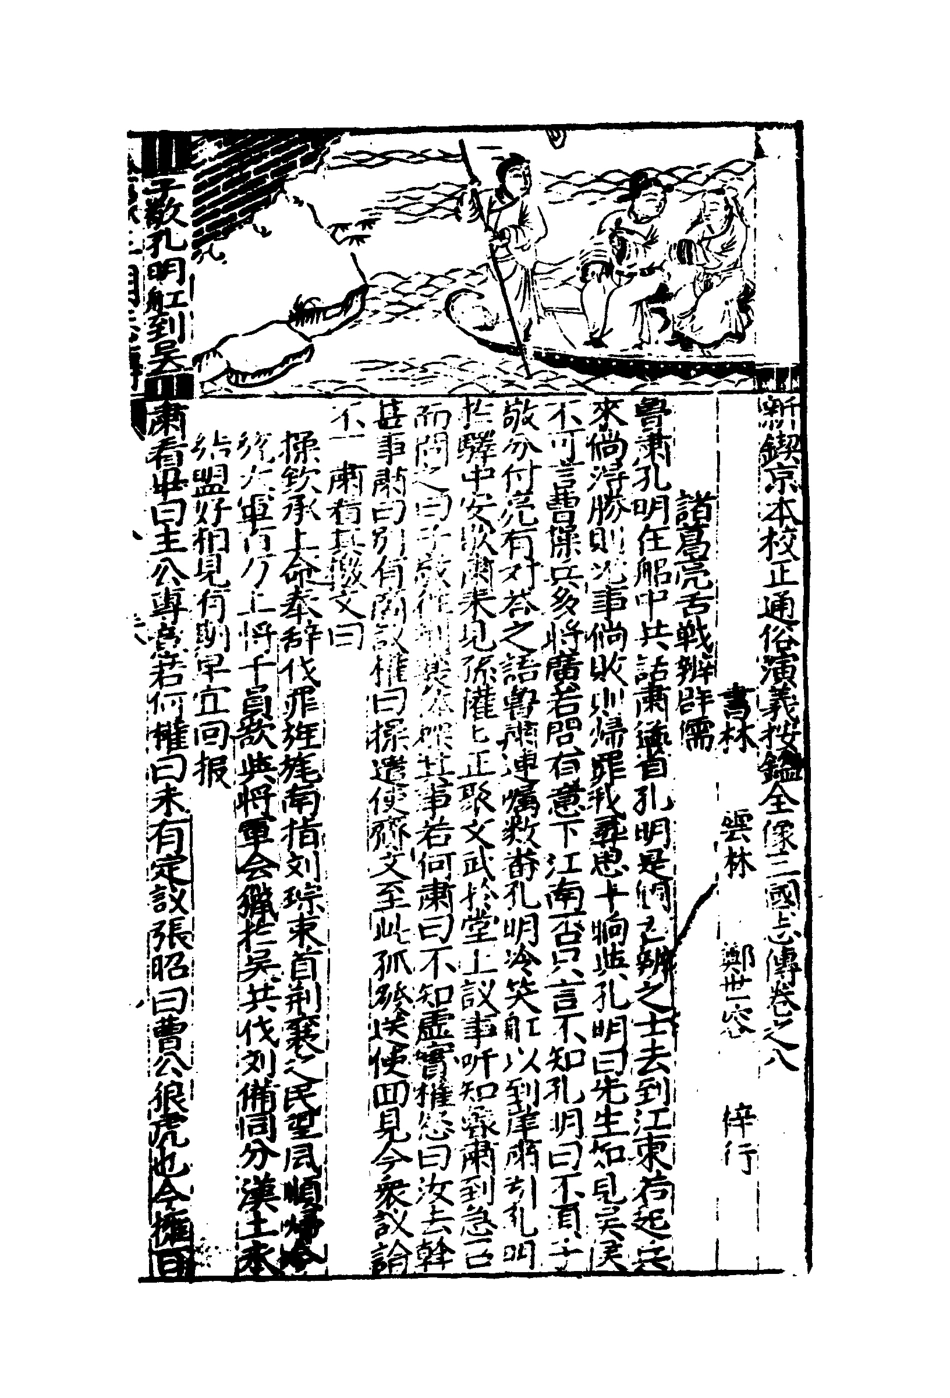 新鍥京本校正通俗演義按鑑全像三國志傳卷之八
書林 雲林 鄭世容 梓行
諸葛亮舌戰辨群儒
魯肅孔明在船中共話肅道首孔明是個舌辨之士去到江東若起兵
來倘得勝則事倘敗則歸罪我尋思半晌與孔明曰先生如見吳侯
不可言曹操兵多將廣若問有意下江南否只言不知孔明曰不須子
敬分付亮有對答之語魯肅連囑數番孔明冷笑舡以到岸肅引孔明
於驛中安以肅來見孫權權正聚文武於堂上議事听知魯肅到急召
而問之曰子敬往荊其事若何肅曰不知虛實權怒曰汝去幹
甚事肅曰別有商議權曰操遣使齊文至此孤發送使回見今衆議論
不一肅看其檄文曰
操欽承上命奉辞伐罪旌旄南指刘琮束首荊襄之民望風順歸今
統大軍百万上將千員欲與將軍会獵於吳共伐刘備同分漢土永
结盟好相見有期早宜回报
肅看畢曰主公專意若何權曰未有定議張昭曰曹公狼虎也今擁百
子敬孔明舡到吳